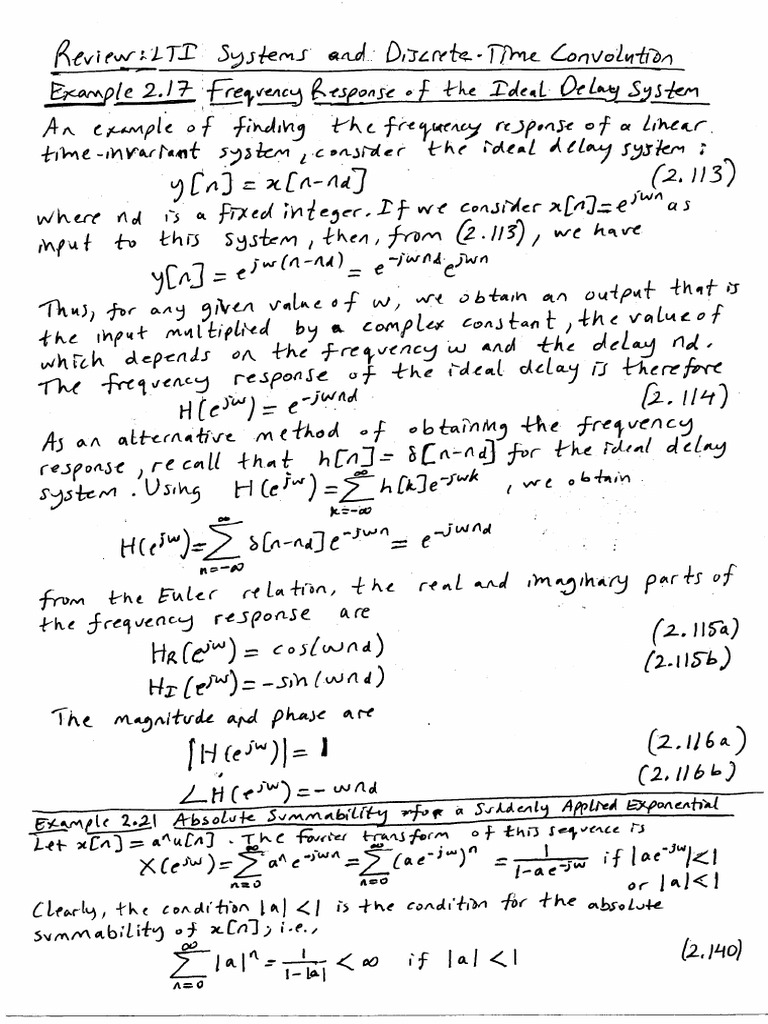 Review: LTI Systems and Discrete-Time Convolution
Example 2.17 Frequency Response of the Ideal Delay System
An example of finding the frequency response of a linear
time-invariant system, consider the ideal delay system:
y[n] = x[n-nd] (2.113)
where nd is a fixed integer. If we consider x[n]=e^{jwn} as
input to this system, then, from (2.113), we have
y[n] = e^{jw(n-nd)} = e^{-jwnd} e^{jwn}
Thus, for any given value of w, we obtain an output that is
the input multiplied by a complex constant, the value of
which depends on the frequency w and the delay nd.
The frequency response of the ideal delay is therefore
H(e^{jw}) = e^{-jwnd} (2.114)
As an alternative method of obtaining the frequency
response, recall that h[n] = δ[n-nd] for the ideal delay
system. Using H(e^{jw}) = ∑_{k=-∞}^{∞} h[k]e^{-jwk}, we obtain
H(e^{jw}) = ∑_{n=-∞}^{∞} δ[n-nd]e^{-jwn} = e^{-jwnd}
from the Euler relation, the real and imaginary parts of
the frequency response are
H_R(e^{jw}) = cos(wnd) (2.115a)
H_I(e^{jw}) = -sin(wnd) (2.115b)
The magnitude and phase are
|H(e^{jw})| = 1 (2.116a)
∠H(e^{jw}) = -wnd (2.116b)
Example 2.21 Absolute Summability for a Suddenly Applied Exponential
Let x[n] = a^n u[n]. The fourier transform of this sequence is
X(e^{jw}) = ∑_{n=0}^{∞} a^n e^{-jwn} = ∑_{n=0}^{∞} (ae^{-jw})^n = 1/(1-ae^{-jw}) if |ae^{-jw}|<1
or |a|<1
Clearly, the condition |a|<1 is the condition for the absolute
summability of x[n]; i.e.,
∑_{n=0}^{∞} |a|^n = 1/(1-|a|) < ∞ if |a|<1 (2.140)